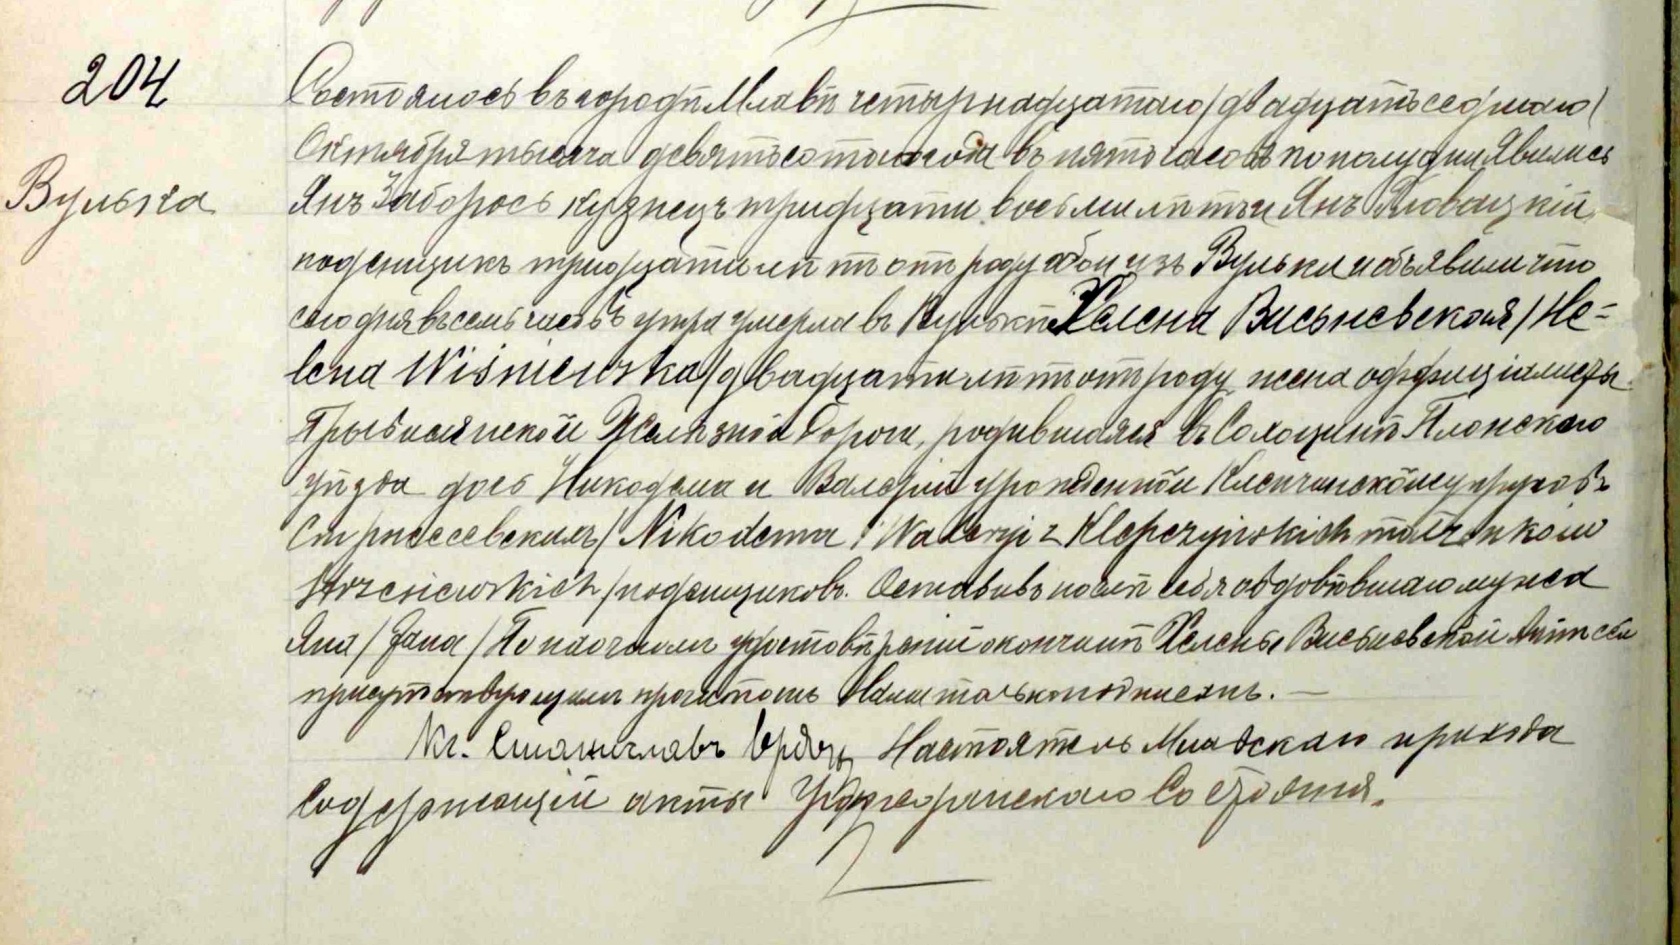 204
Вулька
Состоялось въ городѣ Млавѣ четырнадцатаго /двадцать седьмаго/
Октября тысяча девятьсотаго года въ пять часовъ пополудни. Явились
Янъ Заборось кузнецъ тридцати восьми лѣтъ и Янъ
поденщикъ тридцати лѣтъ отъ роду обои изъ Вульки и объявили что
сего дня въ семь часовъ утра умерла въ Вулькѣ Хелена Висьневская /He-
lena Wiśniewska/ двадцати лѣтъ отъ роду жена оффиціалисты
Привислянской Желѣзной Дороги, родившаяся въ Плонскаго
уѣзда дочь Никодема и Валеріи урожденной Клепчинской супруговъ
/Nikodema i Waleryi z Klepczyńskich małżonków
/поденщиковъ. Оставивъ послѣ себя овдовѣвшаго мужа
Яна /Jana/ По наочномъ удостовѣреніи о кончинѣ Хелены Висьневской Актъ сей
присутствующимъ прочитанъ Нами только подписанъ. —
Кс. Станиславъ Настоятель Млавскаго прихода
Содержащій акты Гражданскаго Состоянія.